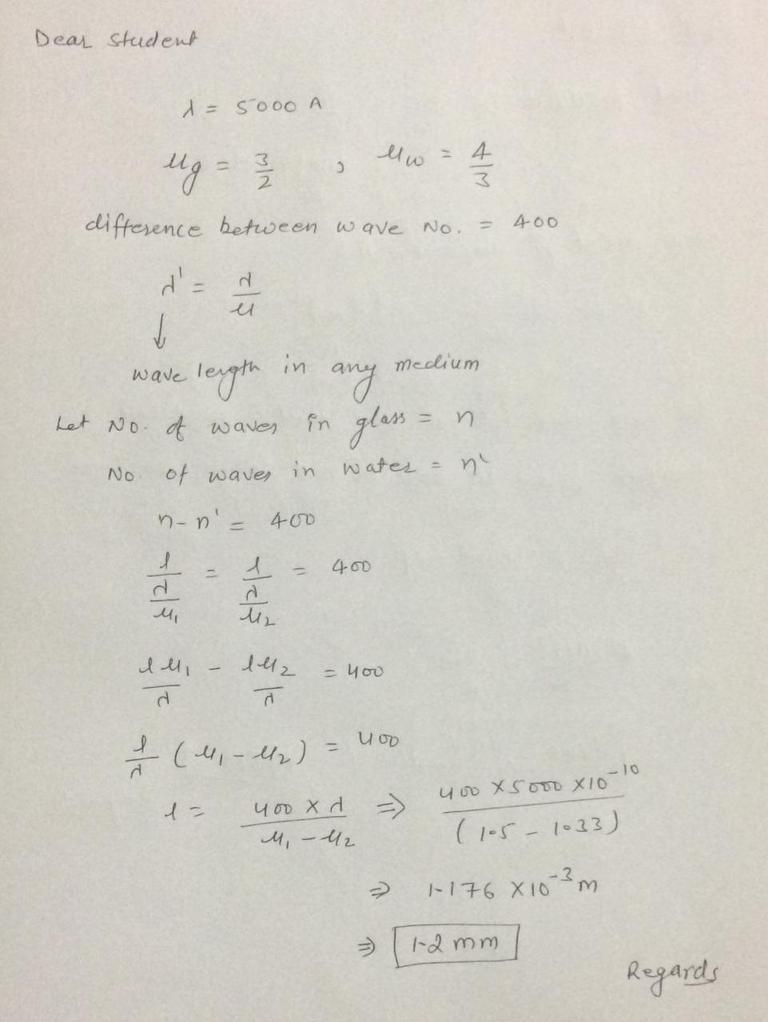 Dear Student
λ = 5000 A
μg = 3/2 , μw = 4/3
difference between wave No. = 400
λ' = λ/μ
↓
wave length in any medium
Let No. of waves in glass = n
No of waves in water = n'
n - n' = 400
l/(λ/μ₁) = l/(λ/μ₂) = 400
lμ₁/λ - lμ₂/λ = 400
l/λ (μ₁ - μ₂) = 400
l = (400 × λ)/(μ₁ - μ₂) ⇒ (400 × 5000 × 10⁻¹⁰)/(1.5 - 1.33)
⇒ 1.176 × 10⁻³ m
⇒ 1.2 mm
Regards